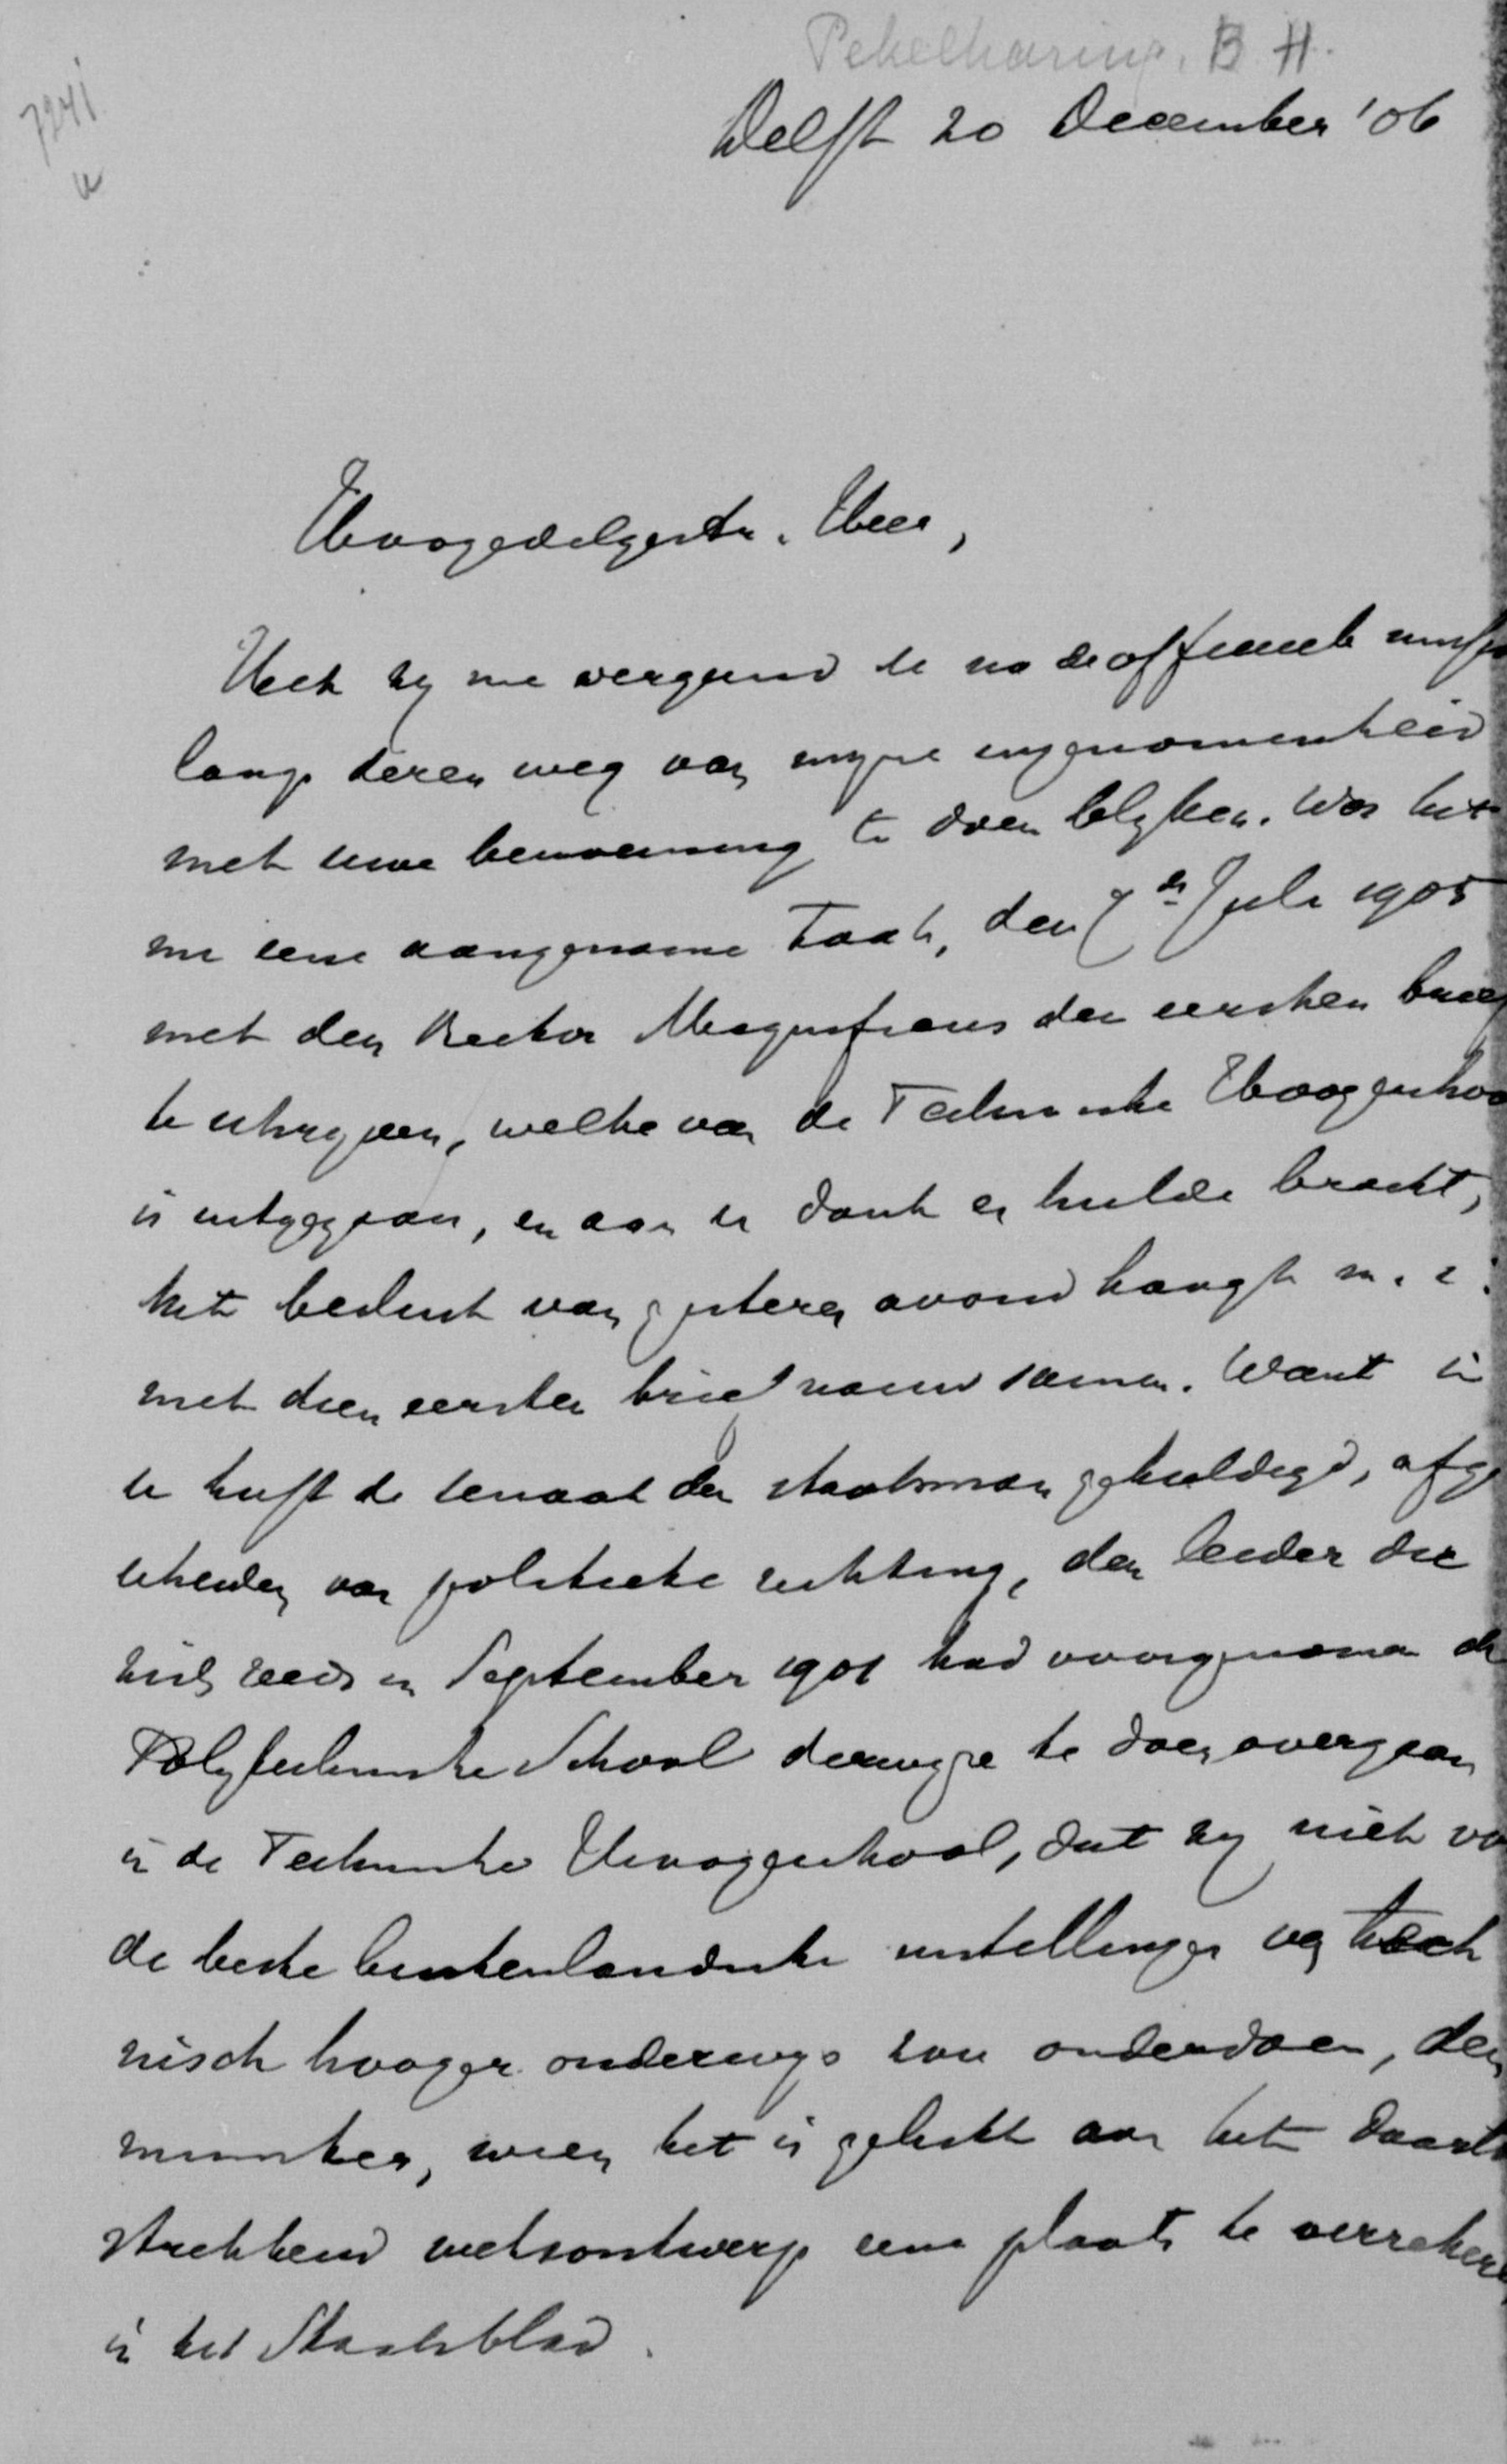 Pekelharing, B. H.
7241
Delft 20 December '06
Hoogedelgestr. Heer,
Het zij me vergund U na de officieele
langs dezen weg van mijne ingenomenheid
met uwe benoeming te doen blijken. Was het
me eene aangename taak, den 7den Juli 1905
met den Rector Magnificus den eersten brief
te schrijven, welke van de Technische Hoogeschool
is uitgegaan, en aan U dank en hulde bracht,
het besluit van gisteren avond hangt m. i.
met dien eersten brief nauw samen. Want in
U heeft de senaat den staatsman gehuldigd, afge
scheiden van politieke richting, den leider die
zich reeds in September 1901 had voorgenomen de
Polytechnische School derwijze te doen overgaan
in de Technische Hoogeschool, dat zij niet voor
de beste buitenlandsche instellingen van tech
nisch hooger onderwijs zou onderdoen, den
minister, wien het is gelukt aan het daartoe
strekkend wetsontwerp eene plaats te verzekeren
in het Staatsblad.